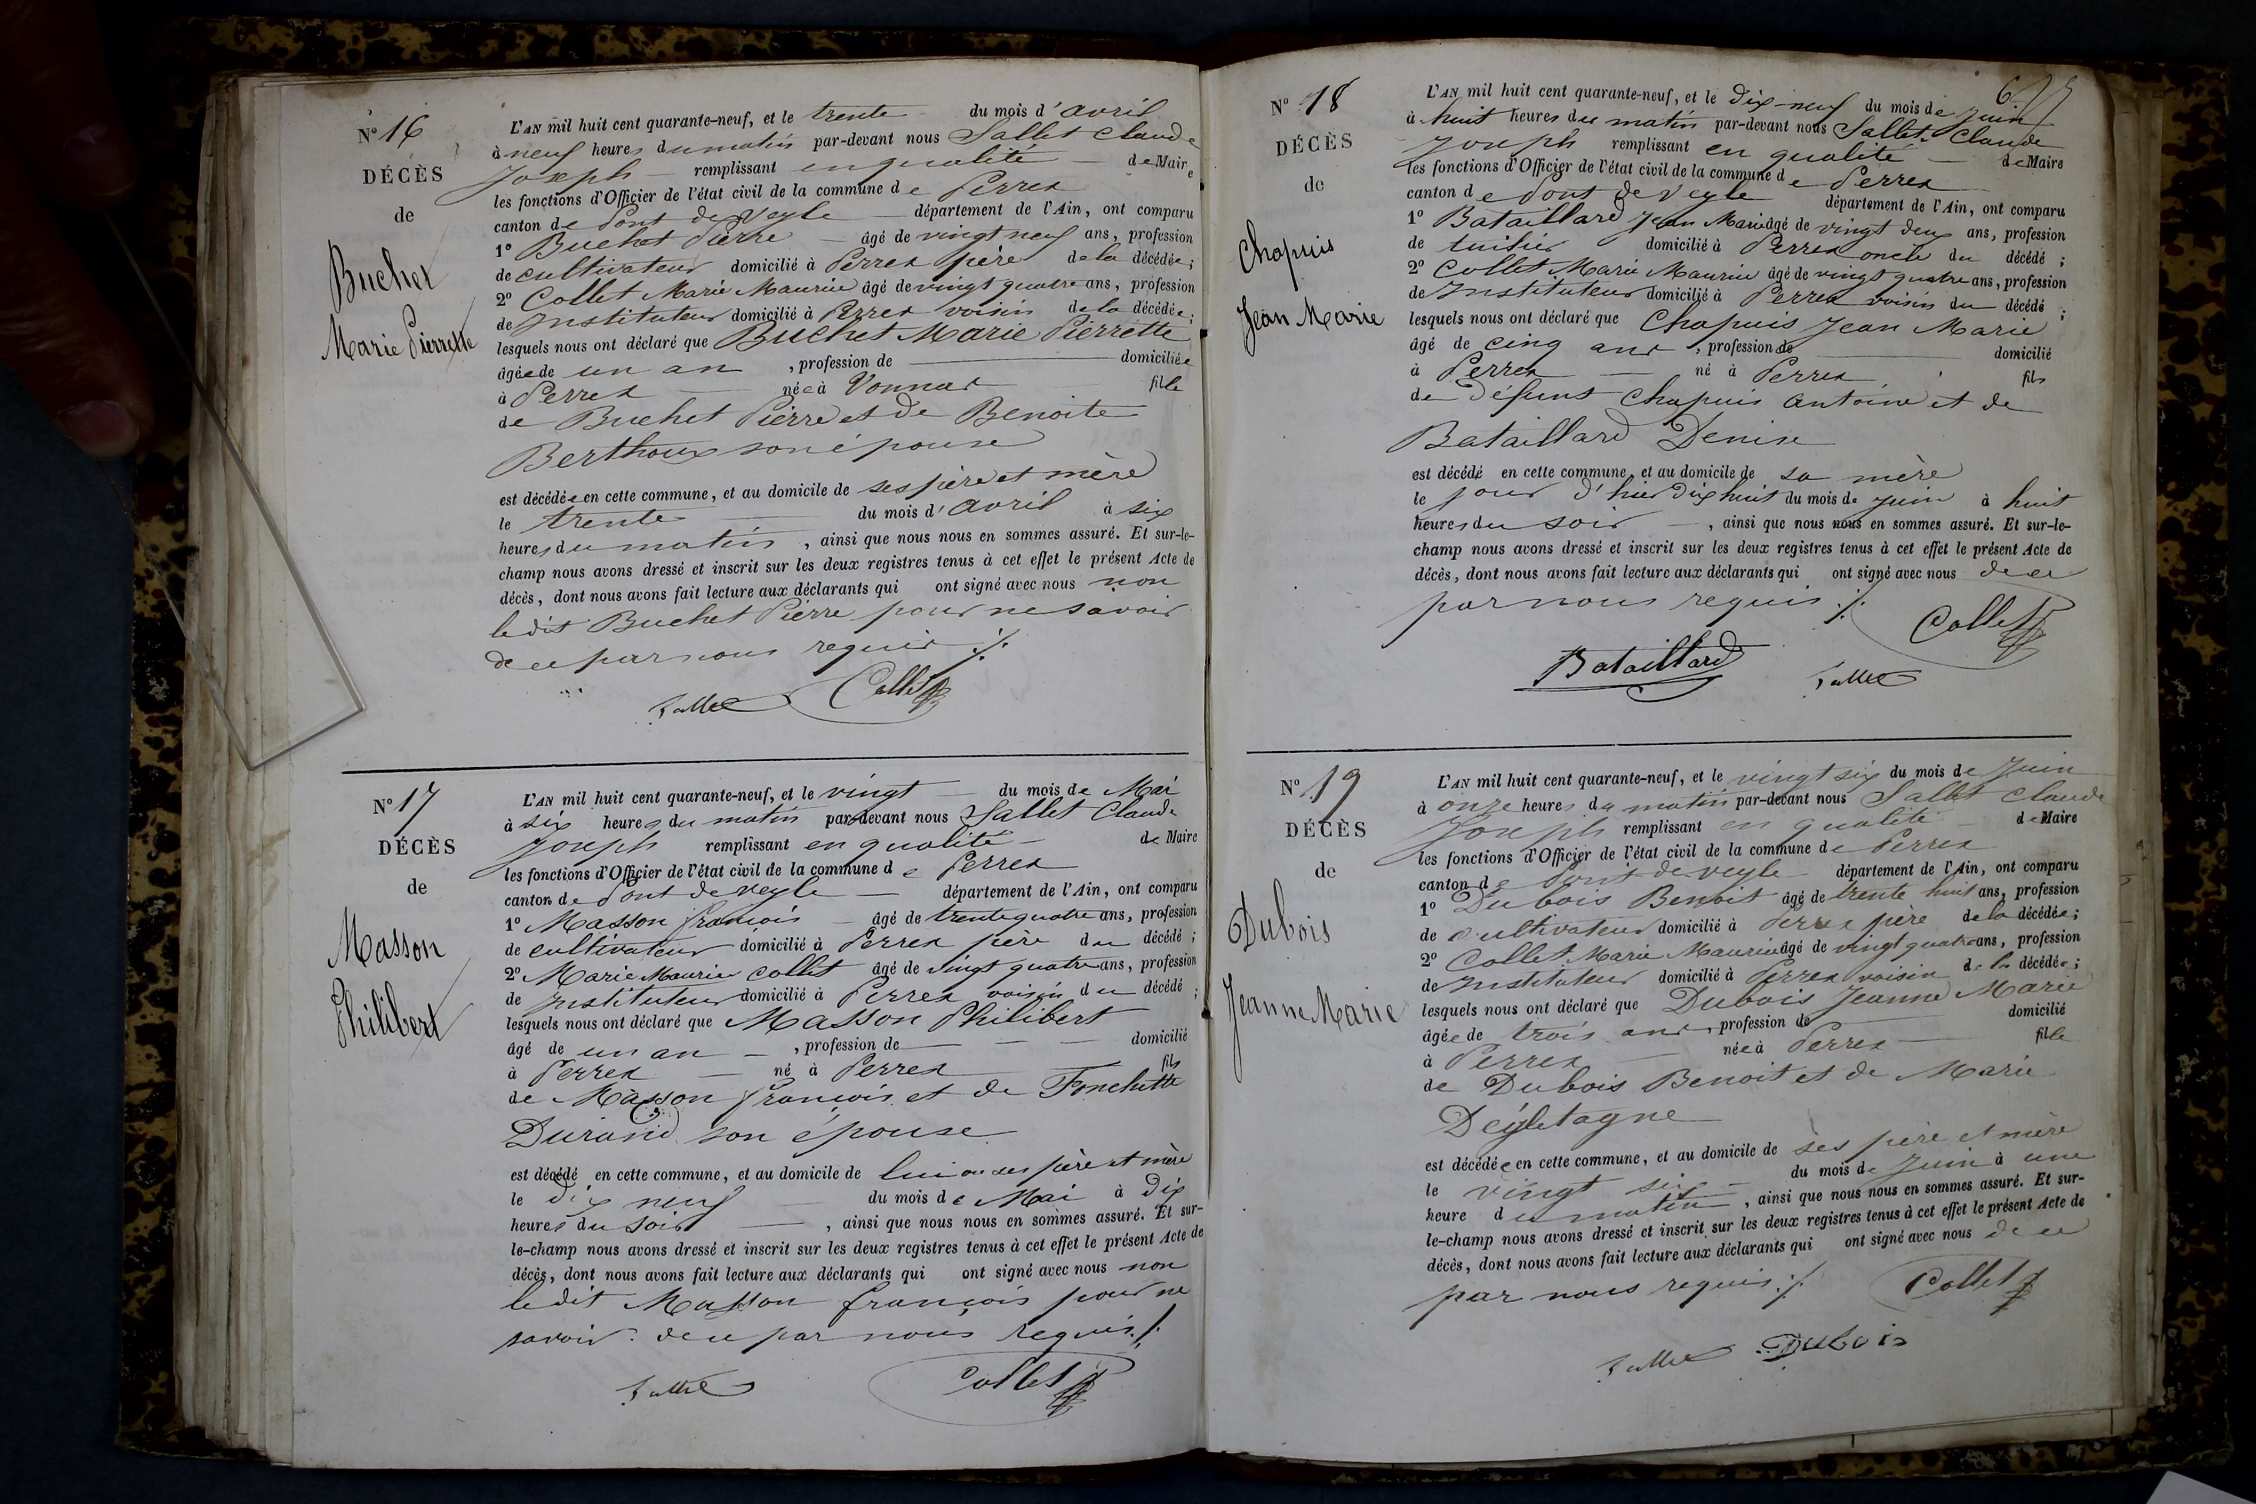 N° 16
DÉCÈS
de
Buchet
Marie Pierrette
L'AN mil huit cent quarante-neuf, et le trente du mois d'avril
à neuf heures du matin par-devant nous Sallet Claude
Joseph remplissant en qualité de Maire
les fonctions d'Officier de l'état civil de la commune de Perrex
canton de Pont de Veyle département de l'Ain, ont comparu
1° Buchet Pierre âgé de vingt neuf ans, profession
de cultivateur domicilié à Perrex père de la décédée;
2° Collet Marie Maurice âgé de vingt quatre ans, profession
de Instituteur domicilié à Perrex voisin de la décédée;
lesquels nous ont déclaré que Buchet Marie Pierrette
âgée de un an, profession de domiciliée
à Perrex née à Vonnas fille
de Buchet Pierre et de Benoite
Berthoux son épouse
est décédée en cette commune, et au domicile de ses père et mère
le trente du mois d'avril à six
heures du matin, ainsi que nous nous en sommes assuré. Et sur-le-
champ nous avons dressé et inscrit sur les deux registres tenus à cet effet le présent Acte de
décès, dont nous avons fait lecture aux déclarants qui ont signé avec nous non
le dit Buchet Pierre pour ne savoir
de ce par nous requis ./.
Sallet Collet
N° 17
DÉCÈS
de
Masson
Philibert
L'AN mil huit cent quarante-neuf, et le vingt du mois de Mai
à six heures du matin par-devant nous Sallet Claude
Joseph remplissant en qualité de Maire
les fonctions d'Officier de l'état civil de la commune de Perrex
canton de Pont de Veyle département de l'Ain, ont comparu
1° Masson françois âgé de trente quatre ans, profession
de cultivateur domicilié à Perrex père du décédé;
2° Marie Maurice Collet âgé de vingt quatre ans, profession
de Instituteur domicilié à Perrex voisin du décédé;
lesquels nous ont déclaré que Masson Philibert
âgé de un an, profession de domicilié
à Perrex né à Perrex fils
de Masson françois et de Fonchette
Durand son épouse
est décédé en cette commune, et au domicile de lui ou ses père et mère
le dix neuf du mois de Mai à dix
heures du soir, ainsi que nous nous en sommes assuré. Et sur-
le-champ nous avons dressé et inscrit sur les deux registres tenus à cet effet le présent Acte de
décès, dont nous avons fait lecture aux déclarants qui ont signé avec nous non
le dit Masson françois pour ne
savoir. de ce par nous requis ./.
Sallet Collet
N° 18
DÉCÈS
de
Chapuis
Jean Marie
L'AN mil huit cent quarante-neuf, et le dix-neuf du mois de juin
à huit heures du matin par-devant nous Sallet Claude
Joseph remplissant en qualité de Maire
les fonctions d'Officier de l'état civil de la commune de Perrex
canton de Pont de Veyle département de l'Ain, ont comparu
1° Bataillard Jean Marie âgé de vingt deux ans, profession
de tuilier domicilié à Perrex oncle du décédé;
2° Collet Marie Maurice âgé de vingt quatre ans, profession
de Instituteur domicilié à Perrex voisin du décédé;
lesquels nous ont déclaré que Chapuis Jean Marie
âgé de cinq ans, profession de domicilié
à Perrex né à Perrex fils
de Défunt Chapuis Antoine et de
Bataillard Denise
est décédé en cette commune, et au domicile de sa mère
le jour d'hier dix huit du mois de Juin à huit
heures du soir, ainsi que nous nous en sommes assuré. Et sur-le-
champ nous avons dressé et inscrit sur les deux registres tenus à cet effet le présent Acte de
décès, dont nous avons fait lecture aux déclarants qui ont signé avec nous de ce
par nous requis ./.
Collet
Bataillard Sallet
N° 19
DÉCÈS
de
Dubois
Jeanne Marie
L'AN mil huit cent quarante-neuf, et le vingt six du mois de Juin
à onze heures du matin par-devant nous Sallet Claude
Joseph remplissant en qualité de Maire
les fonctions d'Officier de l'état civil de la commune de Perrex
canton de Pont de Veyle département de l'Ain, ont comparu
1° Dubois Benoit âgé de trente huit ans, profession
de cultivateur domicilié à Perrex père de la décédée;
2° Collet Marie Maurice âgé de vingt quatre ans, profession
de Instituteur domicilié à Perrex voisin de la décédée;
lesquels nous ont déclaré que Dubois Jeanne Marie
âgée de trois ans, profession de domicilié
à Perrex née à Perrex fille
de Dubois Benoit et de Marie
est décédée en cette commune, et au domicile de ses père et mère
le vingt six du mois de Juin à une
heure du matin, ainsi que nous nous en sommes assuré. Et sur-
le-champ nous avons dressé et inscrit sur les deux registres tenus à cet effet le présent Acte de
décès, dont nous avons fait lecture aux déclarants qui ont signé avec nous de ce
par nous requis ./. Collet
Sallet Dubois